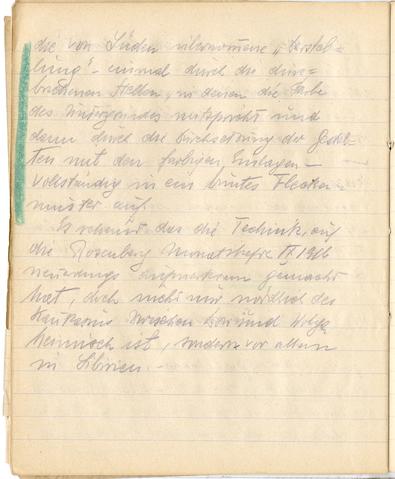 die von Süden übernommene „Darstel-
lung“ – einmal durch die durch-
brochenen Stellen, in denen die Farbe
des Untergrundes mitspricht und
dann durch die Durchsetzung der
ten mit den farbigen Einlagen –
vollständig in ein buntes Flecken-
muster auf.
Es scheint das die Technik, auf
die Rosenberg Monatshefte IX 1916
neuerdings aufmerksam gemacht
hat, doch nicht nur nördlich des
Kaukasus zwischen Don und Wolga
heimisch ist, sondern vor allem
in Sibirien. –